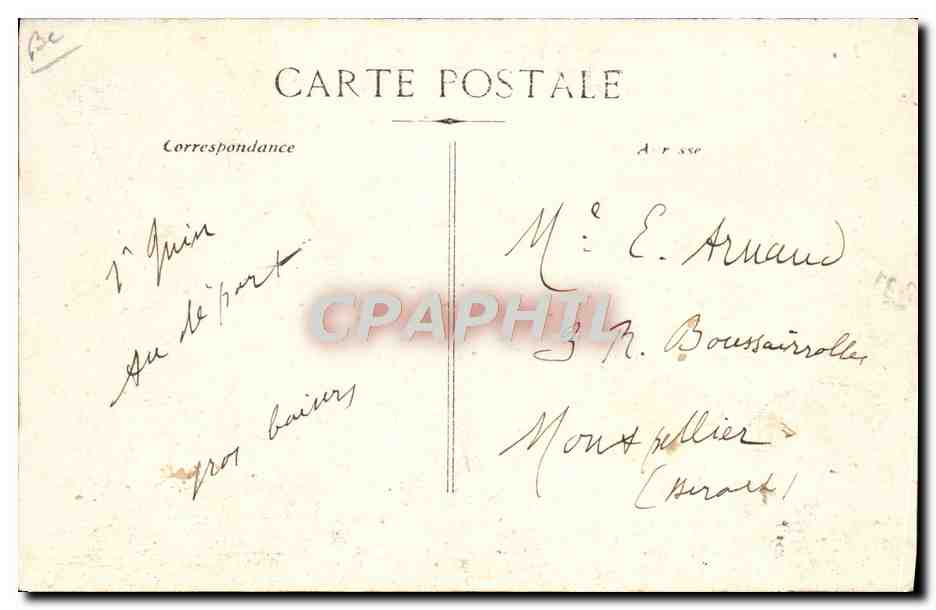 Be
CARTE POSTALE
Correspondance
A r sse
1r Juin
Au départ
gros baisers
Me E. Arnaud
3 R. Boussairolles
Montpellier
(Herault)
CPAPHIL